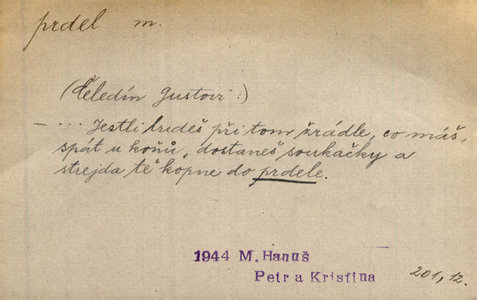 prdel m.
(Čeledín Gustovi:)
... Jestli budeš při tom žrádle, co máš,
spát u koňů, dostaneš soukačky a
strejda tě kopne do prdele.
1944 M. Hanuš
Petr a Kristina
201,12.